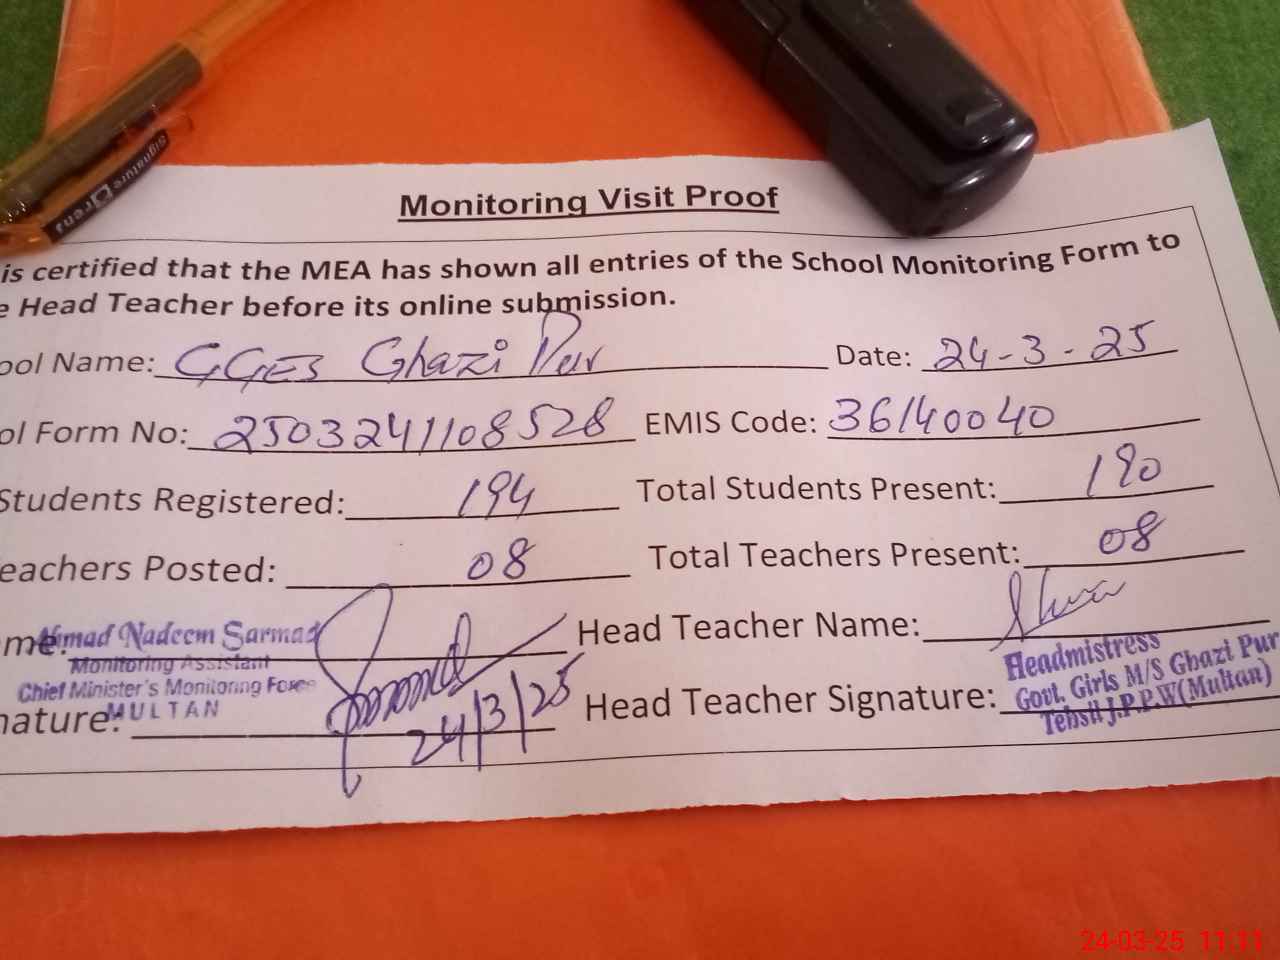 Signature
Monitoring Visit Proof
is certified that the MEA has shown all entries of the School Monitoring Form to
e Head Teacher before its online submission.
ool Name: GGES Ghazi Pur Date: 24-3-25
ol Form No: 2503241108528 EMIS Code: 36140040
Students Registered: 194 Total Students Present: 190
eachers Posted: 08 Total Teachers Present: 08
me: Ahmad Nadeem Sarmad Head Teacher Name:
Monitoring Assistant
Chief Minister's Monitoring Force
MULTAN
nature: 24/3/25 Head Teacher Signature:
Headmistress
Govt. Girls M/S Ghazi Pur
Tehsil J.P.P.W(Multan)
24-03-25 11:11